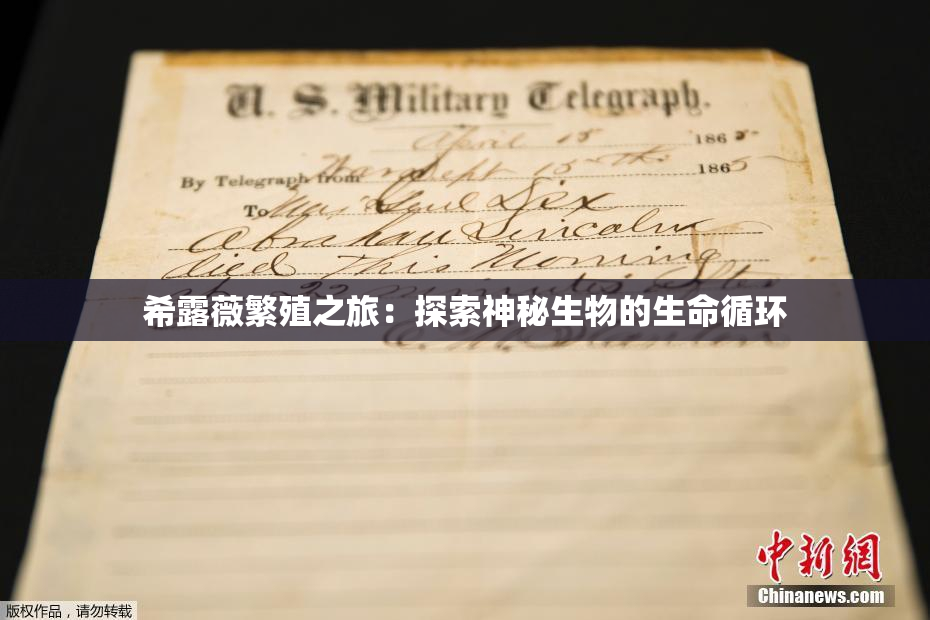 U. S. Military Telegraph.
April 15 1865
By Telegraph from War Dept 15th 1865
To Maj Genl Dix
Abraham Lincoln
died This Morning
at 22 minutes after
希露薇繁殖之旅：探索神秘生物的生命循环
E. M. Stanton
中新網
Chinanews.com
版权作品，请勿转载